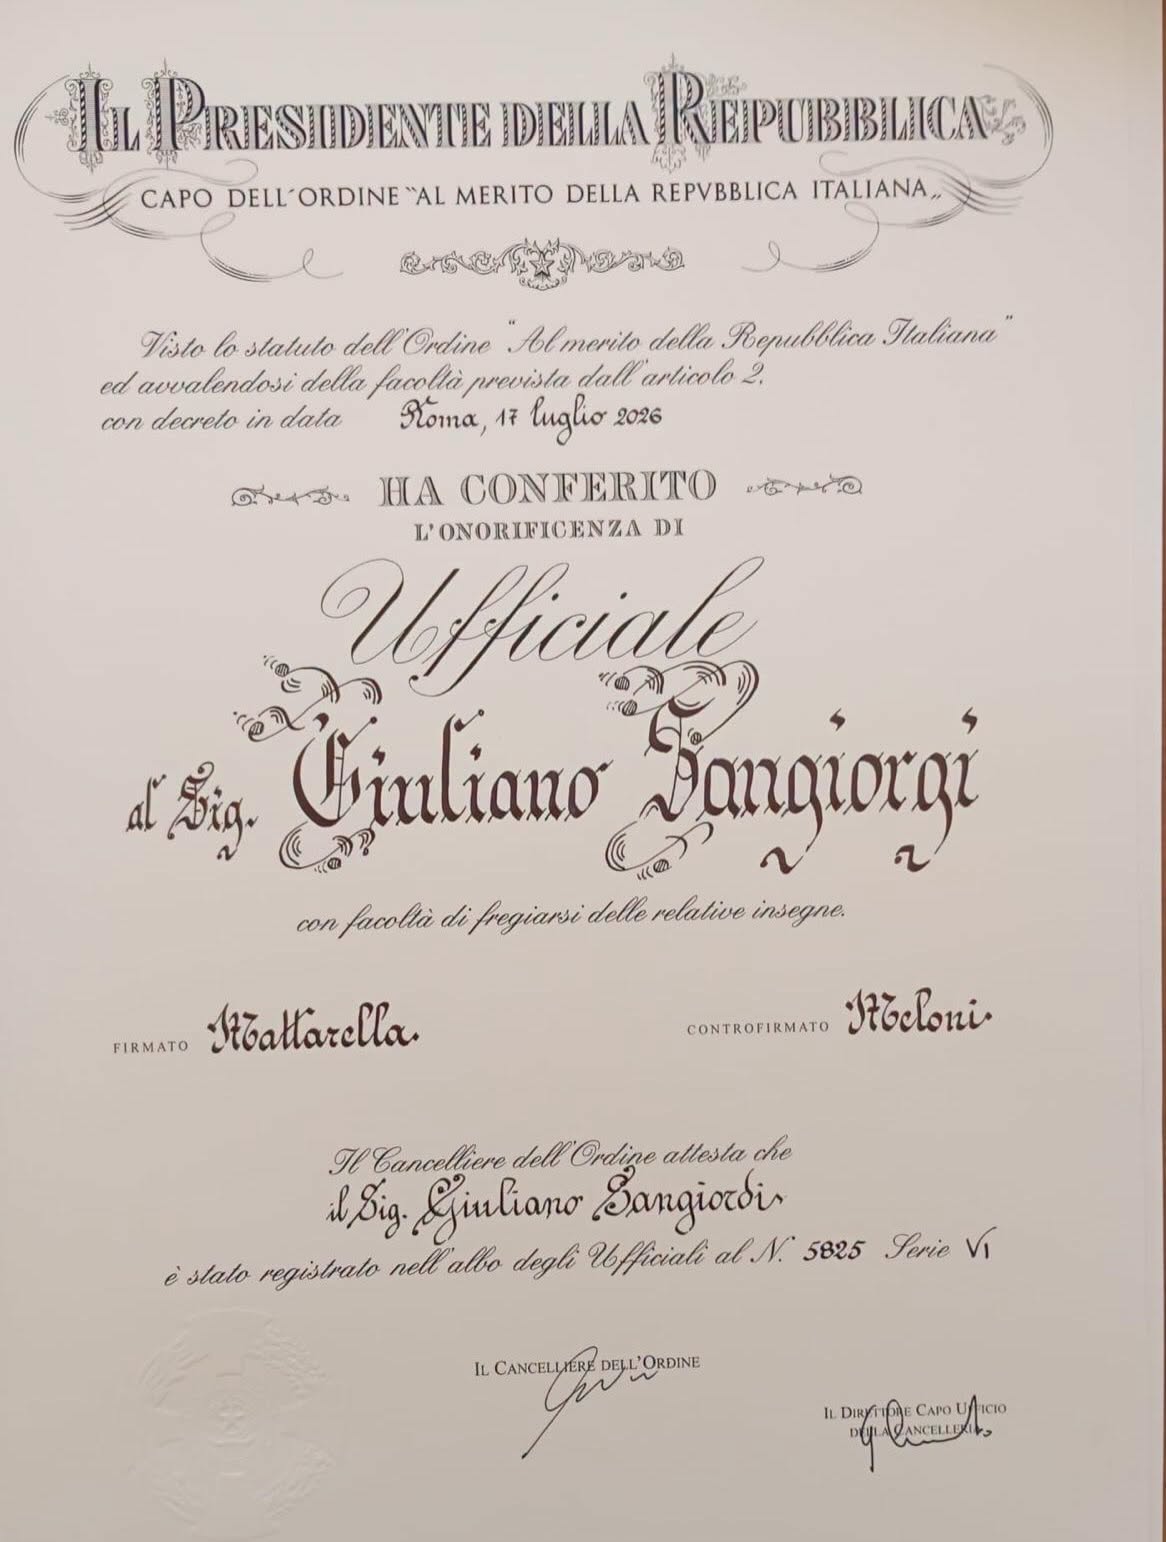 IL PRESIDENTE DELLA REPUBBLICA
CAPO DELL'ORDINE "AL MERITO DELLA REPVBBLICA ITALIANA„
Visto lo statuto dell'Ordine "Al merito della Repubblica Italiana"
ed avvalendosi della facoltà prevista dall'articolo 2.
con decreto in data Roma, 17 luglio 2026
HA CONFERITO
L'ONORIFICENZA DI
Ufficiale
al Sig. Giuliano Sangiorgi
con facoltà di fregiarsi delle relative insegne.
FIRMATO Mattarella. CONTROFIRMATO Meloni.
Il Cancelliere dell'Ordine attesta che
il Sig. Giuliano Sangiordi
è stato registrato nell'albo degli Ufficiali al N. 5825 Serie VI
IL CANCELLIERE DELL'ORDINE
IL DIRETTORE CAPO UFFICIO
DELLA CANCELLERIA